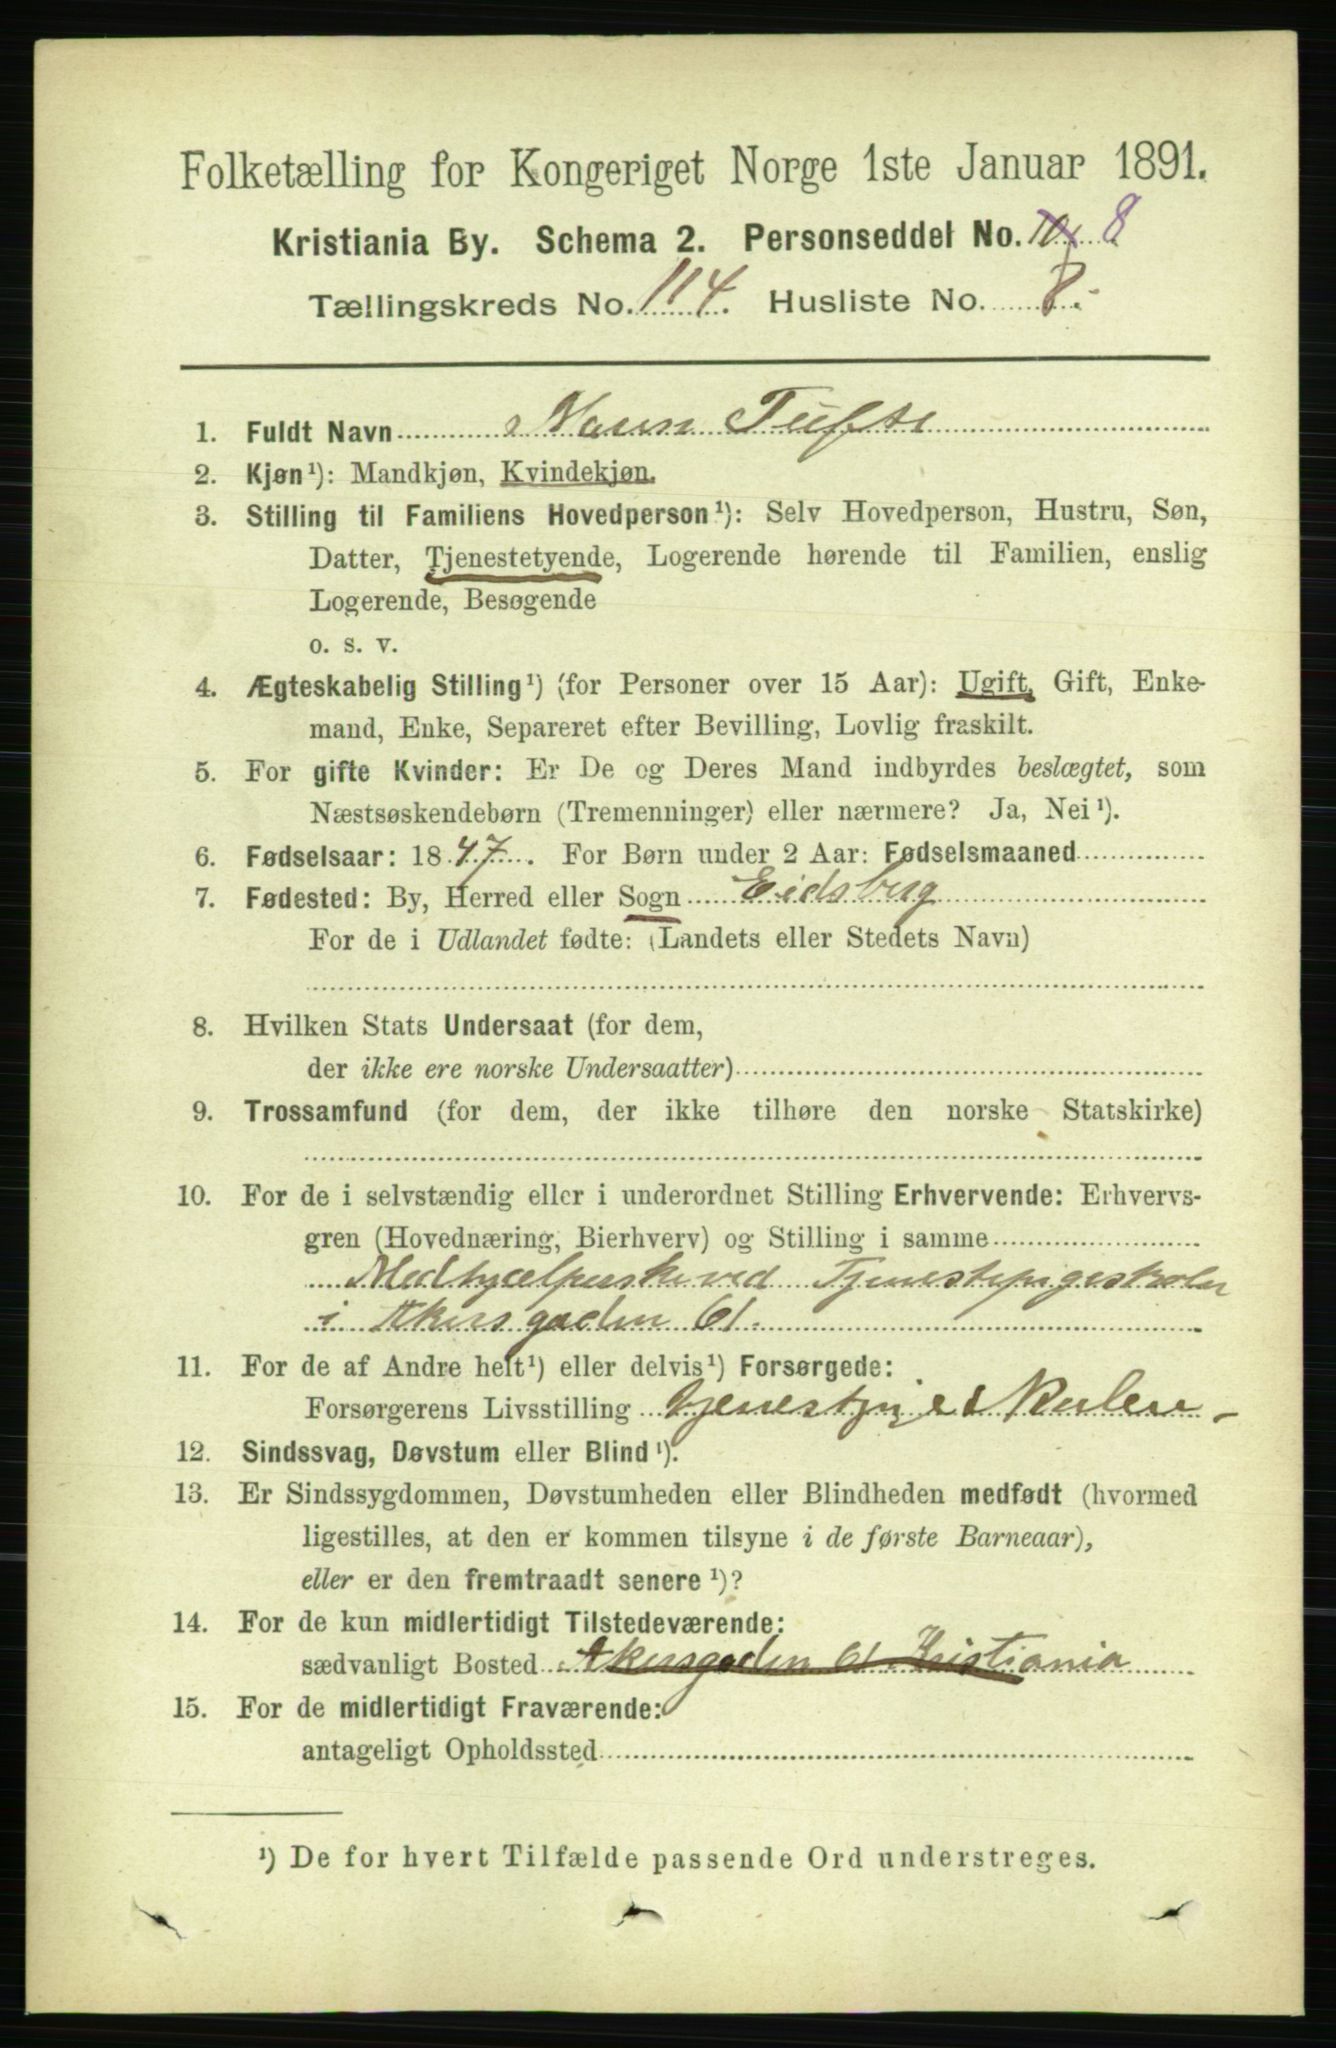 Folketælling for Kongeriget Norge 1ste Januar 1891.
Kristiania By. Schema 2. Personseddel No. 10 8
Tællingskreds No. 114. Husliste No. 8.
1. Fuldt Navn Maren Tufte
2. Kjøn¹): Mandkjøn, Kvindekjøn.
3. Stilling til Familiens Hovedperson¹): Selv Hovedperson, Hustru, Søn,
Datter, Tjenestetyende, Logerende hørende til Familien, enslig
Logerende, Besøgende
o. s. v.
4. Ægteskabelig Stilling¹) (for Personer over 15 Aar): Ugift, Gift, Enke-
mand, Enke, Separeret efter Bevilling, Lovlig fraskilt.
5. For gifte Kvinder: Er De og Deres Mand indbyrdes beslægtet, som
Næstsøskendebørn (Tremenninger) eller nærmere? Ja, Nei¹).
6. Fødselsaar: 1847. For Børn under 2 Aar: Fødselsmaaned
7. Fødested: By, Herred eller Sogn Eidsberg
For de i Udlandet fødte: (Landets eller Stedets Navn)
8. Hvilken Stats Undersaat (for dem,
der ikke ere norske Undersaatter)
9. Trossamfund (for dem, der ikke tilhøre den norske Statskirke)
10. For de i selvstændig eller i underordnet Stilling Erhvervende: Erhvervs-
gren (Hovednæring, Bierhverv) og Stilling i samme
Medhjælperske ved Tjenestepigeskolen
i Akersgaden 61.
11. For de af Andre helt¹) eller delvis¹) Forsørgede:
Forsørgerens Livsstilling
12. Sindssvag, Døvstum eller Blind¹).
13. Er Sindssygdommen, Døvstumheden eller Blindheden medfødt (hvormed
ligestilles, at den er kommen tilsyne i de første Barneaar),
eller er den fremtraadt senere¹)?
14. For de kun midlertidigt Tilstedeværende:
sædvanligt Bosted Akersgaden 61 Kristiania
15. For de midlertidigt Fraværende:
antageligt Opholdssted
¹) De for hvert Tilfælde passende Ord understreges.